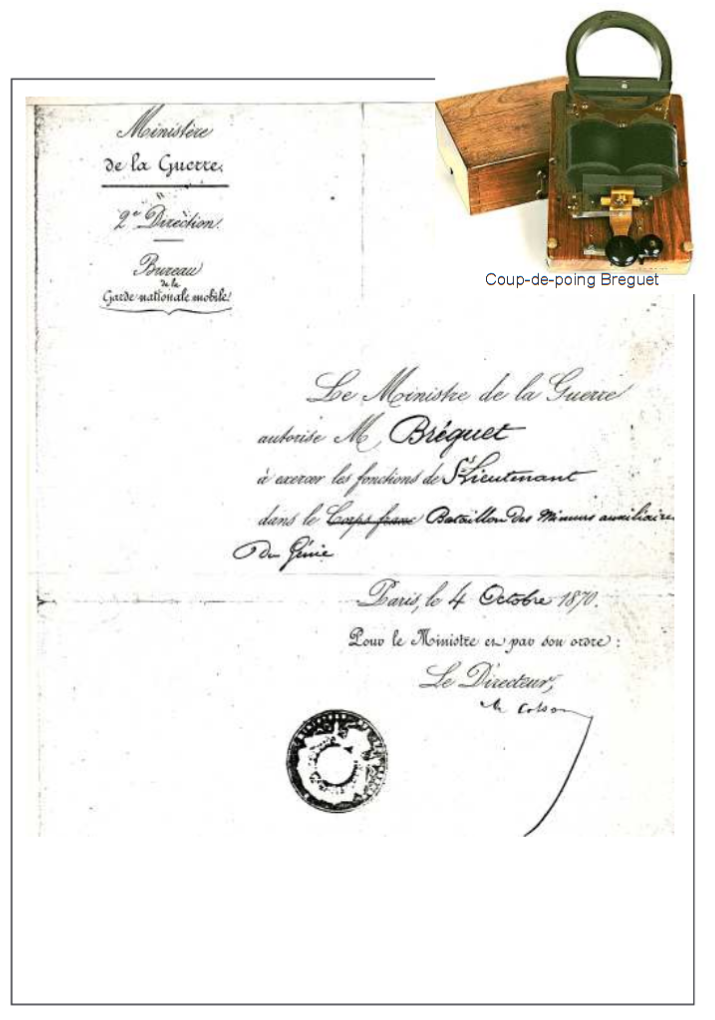 Ministère
de la Guerre.
2e Direction.
Bureau
de la
Garde nationale mobile.
Coup-de-poing Breguet
Le Ministre de la Guerre
autorise M Bréguet
à exercer les fonctions de St Lieutenant
dans le Corps franc Bataillon des Mineurs auxiliaires
Du Génie
Paris, le 4 Octobre 1870.
Pour le Ministre et par son ordre :
Le Directeur,